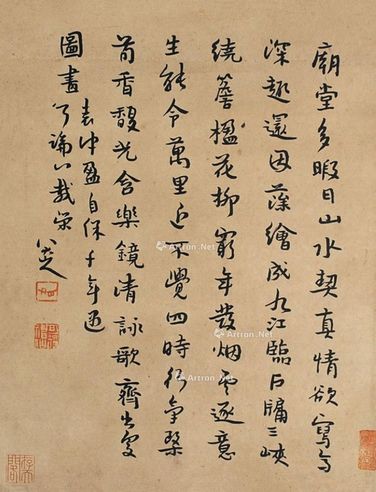 廟堂多暇日山水契真情欲寫高
深趣還因藻繪成九江臨戶牖三峽
繞簷楹花柳窮年發烟雲逐意
生能令萬里近不覺四時行氣染
荀香馥光含樂鏡清詠歌齊出處
圖畫
表冲盈自保千年遇
論八載榮
八大山人
Artron.Net